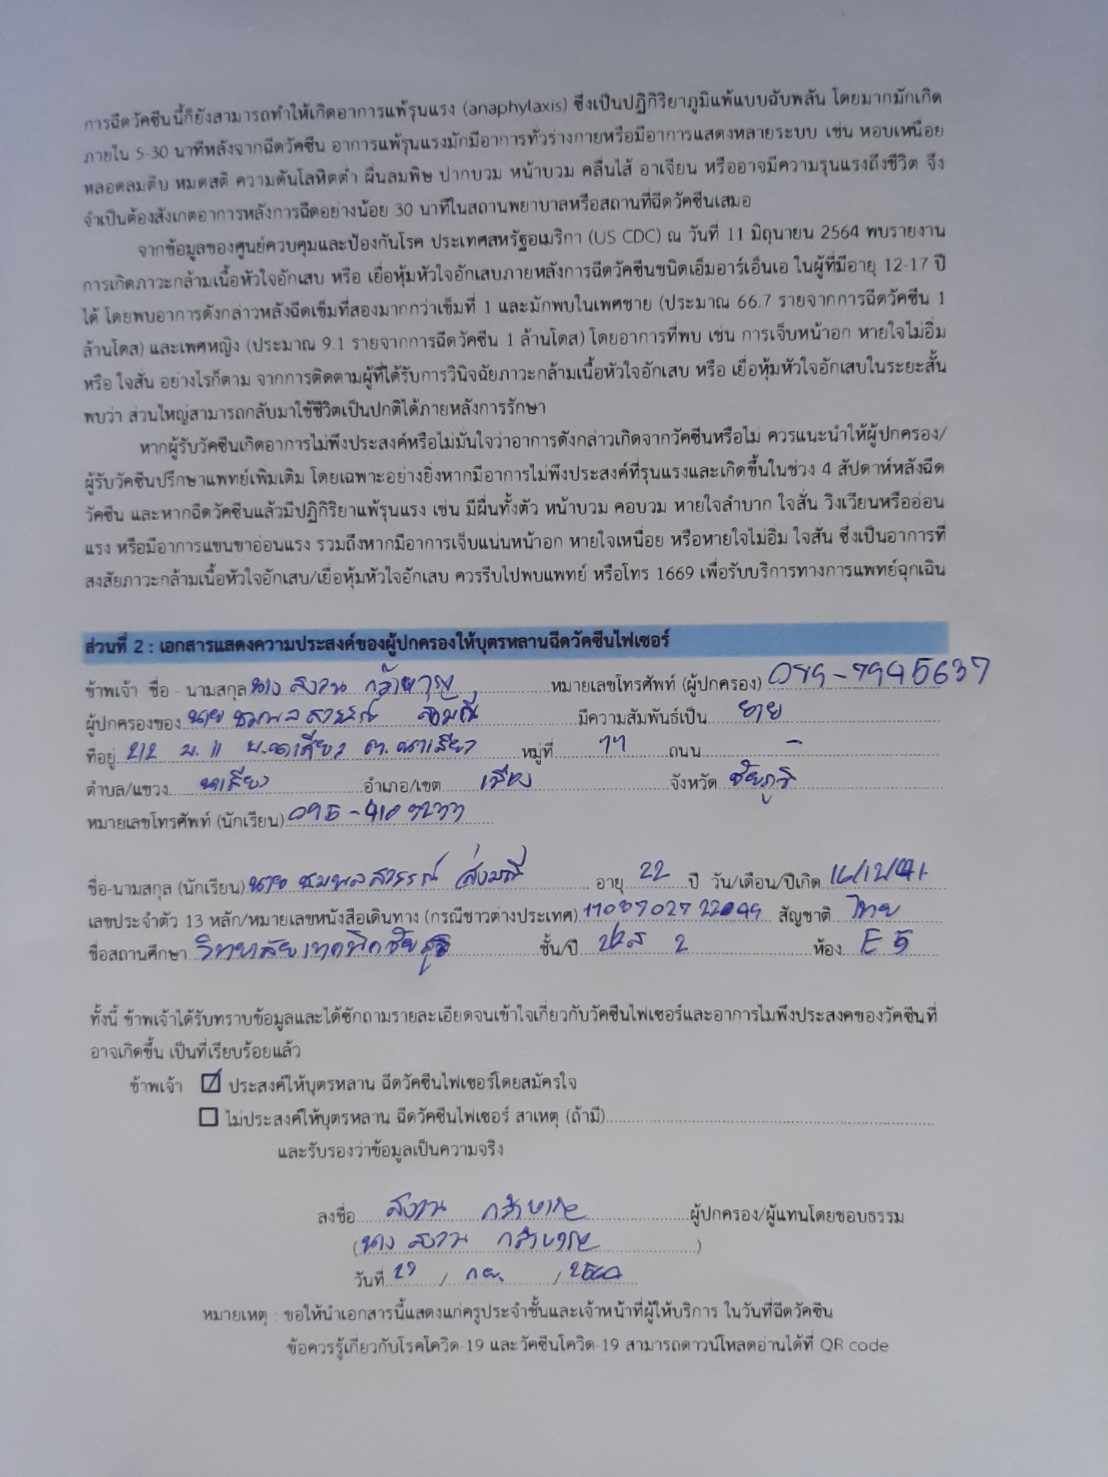 การฉีดวัคซีนนี้ก็ยังสามารถทำให้เกิดอาการแพ้รุนแรง (anaphylaxis) ซึ่งเป็นปฏิกิริยาภูมิแพ้แบบฉับพลัน โดยมากมักเกิด
ภายใน 5-30 นาทีหลังจากฉีดวัคซีน อาการแพ้รุนแรงมักมีอาการทั่วร่างกายหรือมีอาการแสดงหลายระบบ เช่น หอบเหนื่อย
หลอดลมตีบ หมดสติ ความดันโลหิตต่ำ ผื่นลมพิษ ปากบวม หน้าบวม คลื่นไส้ อาเจียน หรืออาจมีความรุนแรงถึงชีวิต จึง
จำเป็นต้องสังเกตอาการหลังการฉีดอย่างน้อย 30 นาทีในสถานพยาบาลหรือสถานที่ฉีดวัคซีนเสมอ
จากข้อมูลของศูนย์ควบคุมและป้องกันโรค ประเทศสหรัฐอเมริกา (US CDC) ณ วันที่ 11 มิถุนายน 2564 พบรายงาน
การเกิดภาวะกล้ามเนื้อหัวใจอักเสบ หรือ เยื่อหุ้มหัวใจอักเสบภายหลังการฉีดวัคซีนชนิดเอ็มอาร์เอ็นเอ ในผู้ที่มีอายุ 12-17 ปี
ได้ โดยพบอาการดังกล่าวหลังฉีดเข็มที่สองมากกว่าเข็มที่ 1 และมักพบในเพศชาย (ประมาณ 66.7 รายจากการฉีดวัคซีน 1
ล้านโดส) และเพศหญิง (ประมาณ 9.1 รายจากการฉีดวัคซีน 1 ล้านโดส) โดยอาการที่พบ เช่น การเจ็บหน้าอก หายใจไม่อิ่ม
หรือ ใจสั่น อย่างไรก็ตาม จากการติดตามผู้ที่ได้รับการวินิจฉัยภาวะกล้ามเนื้อหัวใจอักเสบ หรือ เยื่อหุ้มหัวใจอักเสบในระยะสั้น
พบว่า ส่วนใหญ่สามารถกลับมาใช้ชีวิตเป็นปกติได้ภายหลังการรักษา
หากผู้รับวัคซีนเกิดอาการไม่พึงประสงค์หรือไม่มั่นใจว่าอาการดังกล่าวเกิดจากวัคซีนหรือไม่ ควรแนะนำให้ผู้ปกครอง/
ผู้รับวัคซีนปรึกษาแพทย์เพิ่มเติม โดยเฉพาะอย่างยิ่งหากมีอาการไม่พึงประสงค์ที่รุนแรงและเกิดขึ้นในช่วง 4 สัปดาห์หลังฉีด
วัคซีน และหากฉีดวัคซีนแล้วมีปฏิกิริยาแพ้รุนแรง เช่น มีผื่นทั้งตัว หน้าบวม คอบวม หายใจลำบาก ใจสั่น วิงเวียนหรืออ่อน
แรง หรือมีอาการแขนขาอ่อนแรง รวมถึงหากมีอาการเจ็บแน่นหน้าอก หายใจเหนื่อย หรือหายใจไม่อิ่ม ใจสั่น ซึ่งเป็นอาการที่
สงสัยภาวะกล้ามเนื้อหัวใจอักเสบ/เยื่อหุ้มหัวใจอักเสบ ควรรีบไปพบแพทย์ หรือโทร 1669 เพื่อรับบริการทางการแพทย์ฉุกเฉิน
ส่วนที่ 2 : เอกสารแสดงความประสงค์ของผู้ปกครองให้บุตรหลานฉีดวัคซีนไฟเซอร์
ข้าพเจ้า ชื่อ - นามสกุล นาง สงวน หมายเลขโทรศัพท์ (ผู้ปกครอง)
ผู้ปกครองของ นาย ชมพลสวรรณ์ มีความสัมพันธ์เป็น ยาย
ที่อยู่ 212 ม.11 หมู่ที่ 11 ถนน -
ตำบล/แขวง นาเสียว อำเภอ/เขต เมือง จังหวัด ชัยภูมิ
หมายเลขโทรศัพท์ (นักเรียน)
ชื่อ-นามสกุล (นักเรียน) นาย ชมพลสวรรณ์ อายุ 22 ปี วัน/เดือน/ปีเกิด
เลขประจำตัว 13 หลัก/หมายเลขหนังสือเดินทาง (กรณีชาวต่างประเทศ) สัญชาติ ไทย
ชื่อสถานศึกษา วิทยาลัยเทคนิคชัยภูมิ ชั้น/ปี ปวส 2 ห้อง E5
ทั้งนี้ ข้าพเจ้าได้รับทราบข้อมูลและได้ซักถามรายละเอียดจนเข้าใจเกี่ยวกับวัคซีนไฟเซอร์และอาการไม่พึงประสงค์ของวัคซีนที่
อาจเกิดขึ้น เป็นที่เรียบร้อยแล้ว
ข้าพเจ้า ☑ ประสงค์ให้บุตรหลาน ฉีดวัคซีนไฟเซอร์โดยสมัครใจ
☐ ไม่ประสงค์ให้บุตรหลาน ฉีดวัคซีนไฟเซอร์ สาเหตุ (ถ้ามี)
และรับรองว่าข้อมูลเป็นความจริง
ลงชื่อ สงวน ผู้ปกครอง/ผู้แทนโดยชอบธรรม
(นาง สงวน )
วันที่ 29 / ก.ย. / 2564
หมายเหตุ : ขอให้นำเอกสารนี้แสดงแก่ครูประจำชั้นและเจ้าหน้าที่ผู้ให้บริการ ในวันที่ฉีดวัคซีน
ข้อควรรู้เกี่ยวกับโรคโควิด-19 และวัคซีนโควิด-19 สามารถดาวน์โหลดอ่านได้ที่ QR code